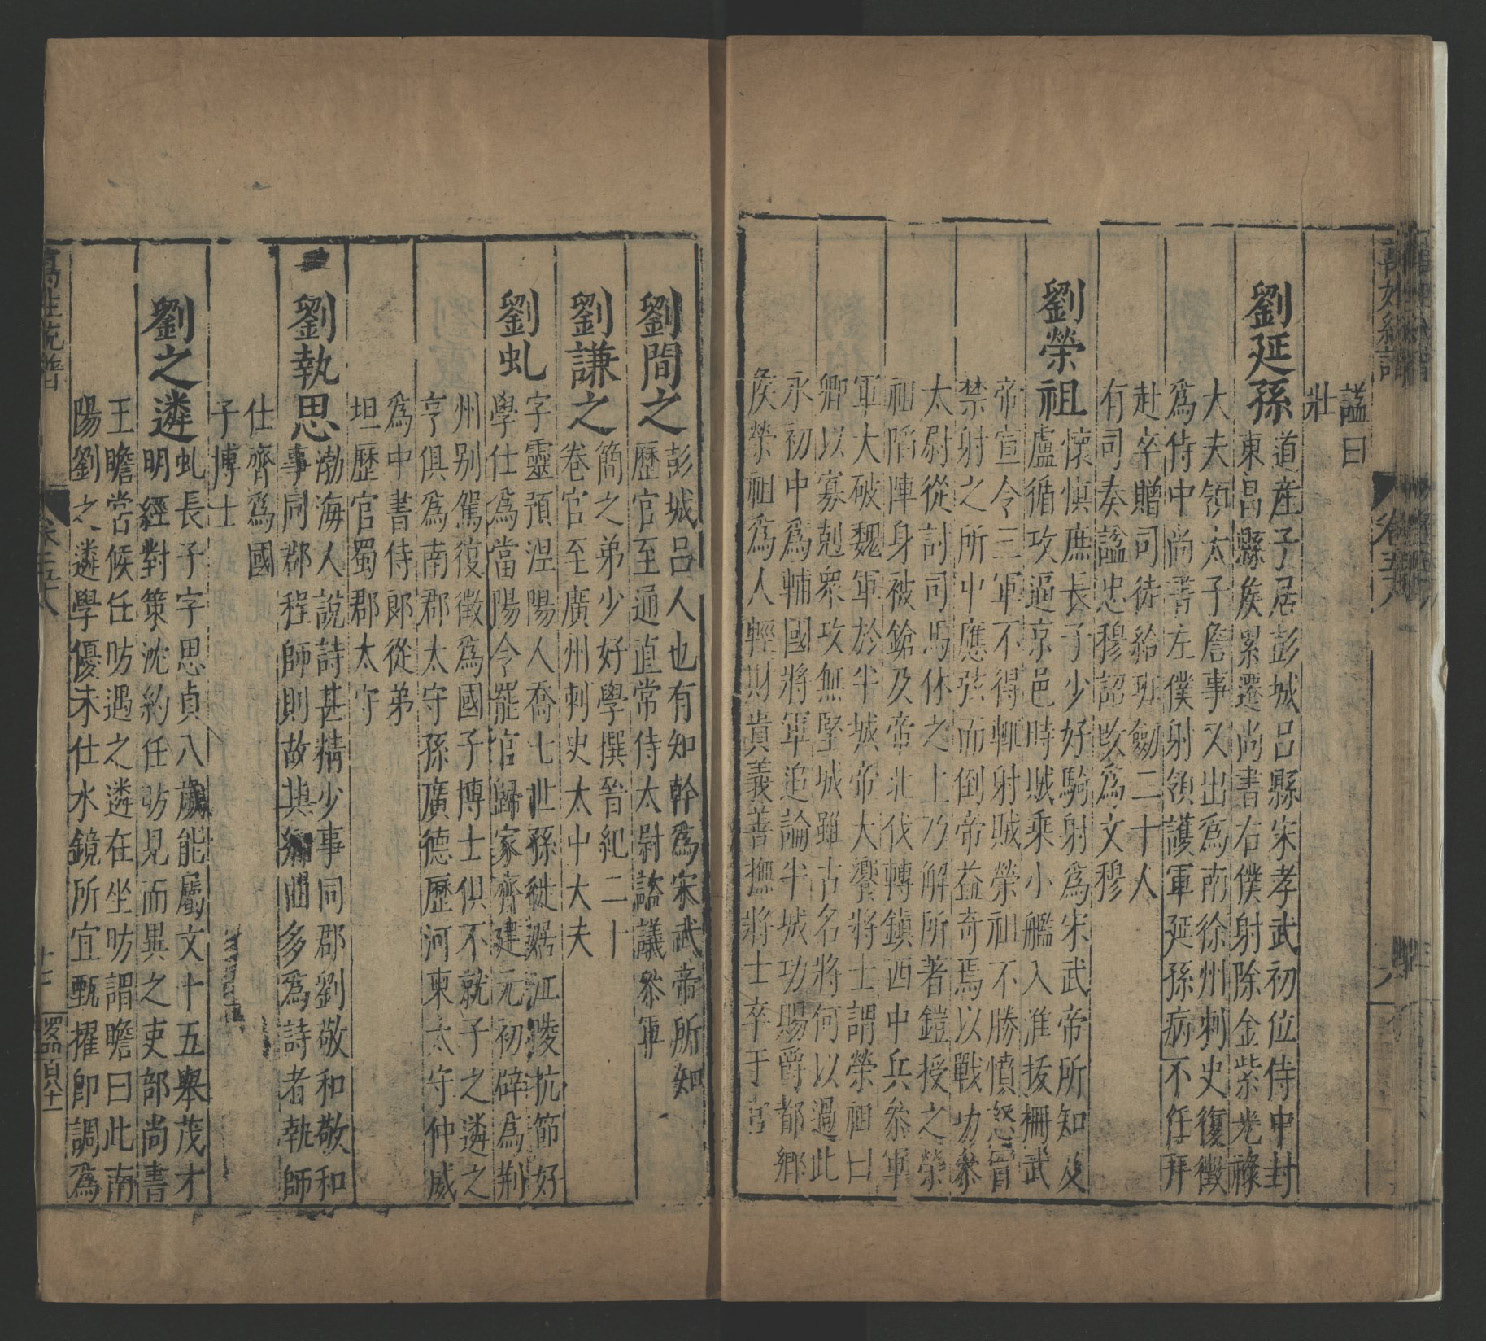 諡曰
壯
劉延孫
道產子居彭城呂縣宋孝武初位侍中封
東昌縣侯累遷尚書右僕射除金紫光祿
大夫領太子詹事又出為南徐州刺史復徵
為侍中尚書左僕射領護軍延孫病不任拜
赴卒贈司徒給班劔二十人
有司奏諡忠穆詔改為文穆
劉榮祖
懷慎庶長子少好騎射為宋武帝所知及
盧循攻逼京邑時賊乘小艦入淮拔柵武
帝宣令三軍不得輒射賊榮祖不勝憤怒冒
禁射之所中應弦而倒帝益奇焉以戰功叅
太尉從討司馬休之上乃解所著鎧授之榮
祖陷陣身被鎗及帝北伐轉鎮西中兵叅軍
軍大破魏軍於半城帝大饗將士謂榮祖曰
卿以寡剋衆攻無堅城雖古名將何以過此
永初中為輔國將軍追論半城功賜爵都鄉
侯榮祖為人輕財貴義善撫將士卒于官
劉間之
彭城呂人也有知幹為宋武帝所知
歷官至通直常侍太尉諮議叅軍
劉謙之
簡之弟少好學撰晉紀二十
卷官至廣州刺史太中大夫
劉虬
字靈預涅陽人喬七世孫徙居江陵抗節好
學仕為當陽令罷官歸家齊建元初辟為荆
州別駕復徵為國子博士俱不就子之遴之
亨俱為南郡太守孫廣德歷河東太守仲威
為中書侍郎從弟
坦歷官蜀郡太守
劉執思
渤海人說詩甚精少事同郡劉敬和敬和
事同郡程師則故其鄉曲多為詩者執師
仕齊為國
子博士
劉之遴
虬長子字思貞八歲能屬文十五舉茂才
明經對策沈約任昉見而異之吏部尚書
王瞻嘗候任昉遇之遴在坐昉謂瞻曰此南
陽劉之遴學優未仕水鏡所宜甄擢即調為
萬姓統譜
卷五十八